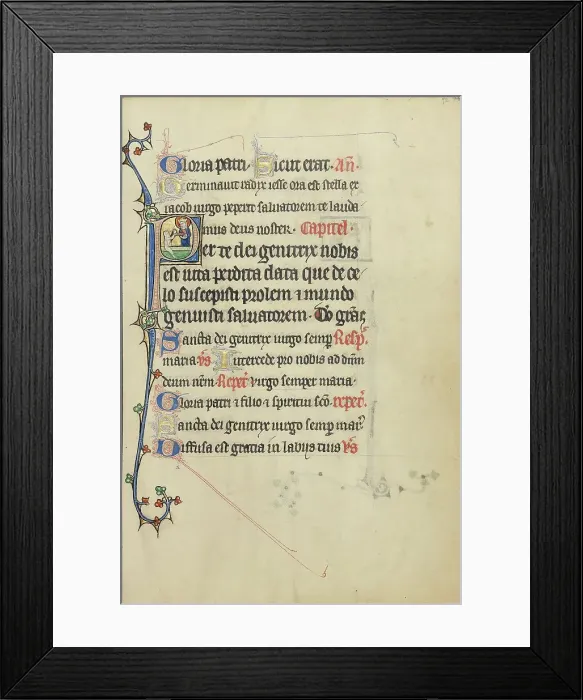 Gloria patri. Sicut erat. Añ.
Germinavit radix iesse orta est stella ex
iacob uirgo peperit saluatorem te lauda
mus deus noster. Capitel'.
Per te dei genitrix nobis
est uita perdita data que de ce
lo suscepisti prolem ⁊ mundo
genuisti saluatorem. Do grãs
Sancta dei genitrix uirgo semp̄ Resp̄.
maria. vs̄ Intercede pro nobis ad dñm
deum nr̃m. Repet̃. uirgo semper maria.
Gloria patri ⁊ filio ⁊ spiritui sc̃o. repet̃.
Sancta dei genitrix uirgo semp̄ mar̃
Diffusa est gratia in labijs tuis vs̄